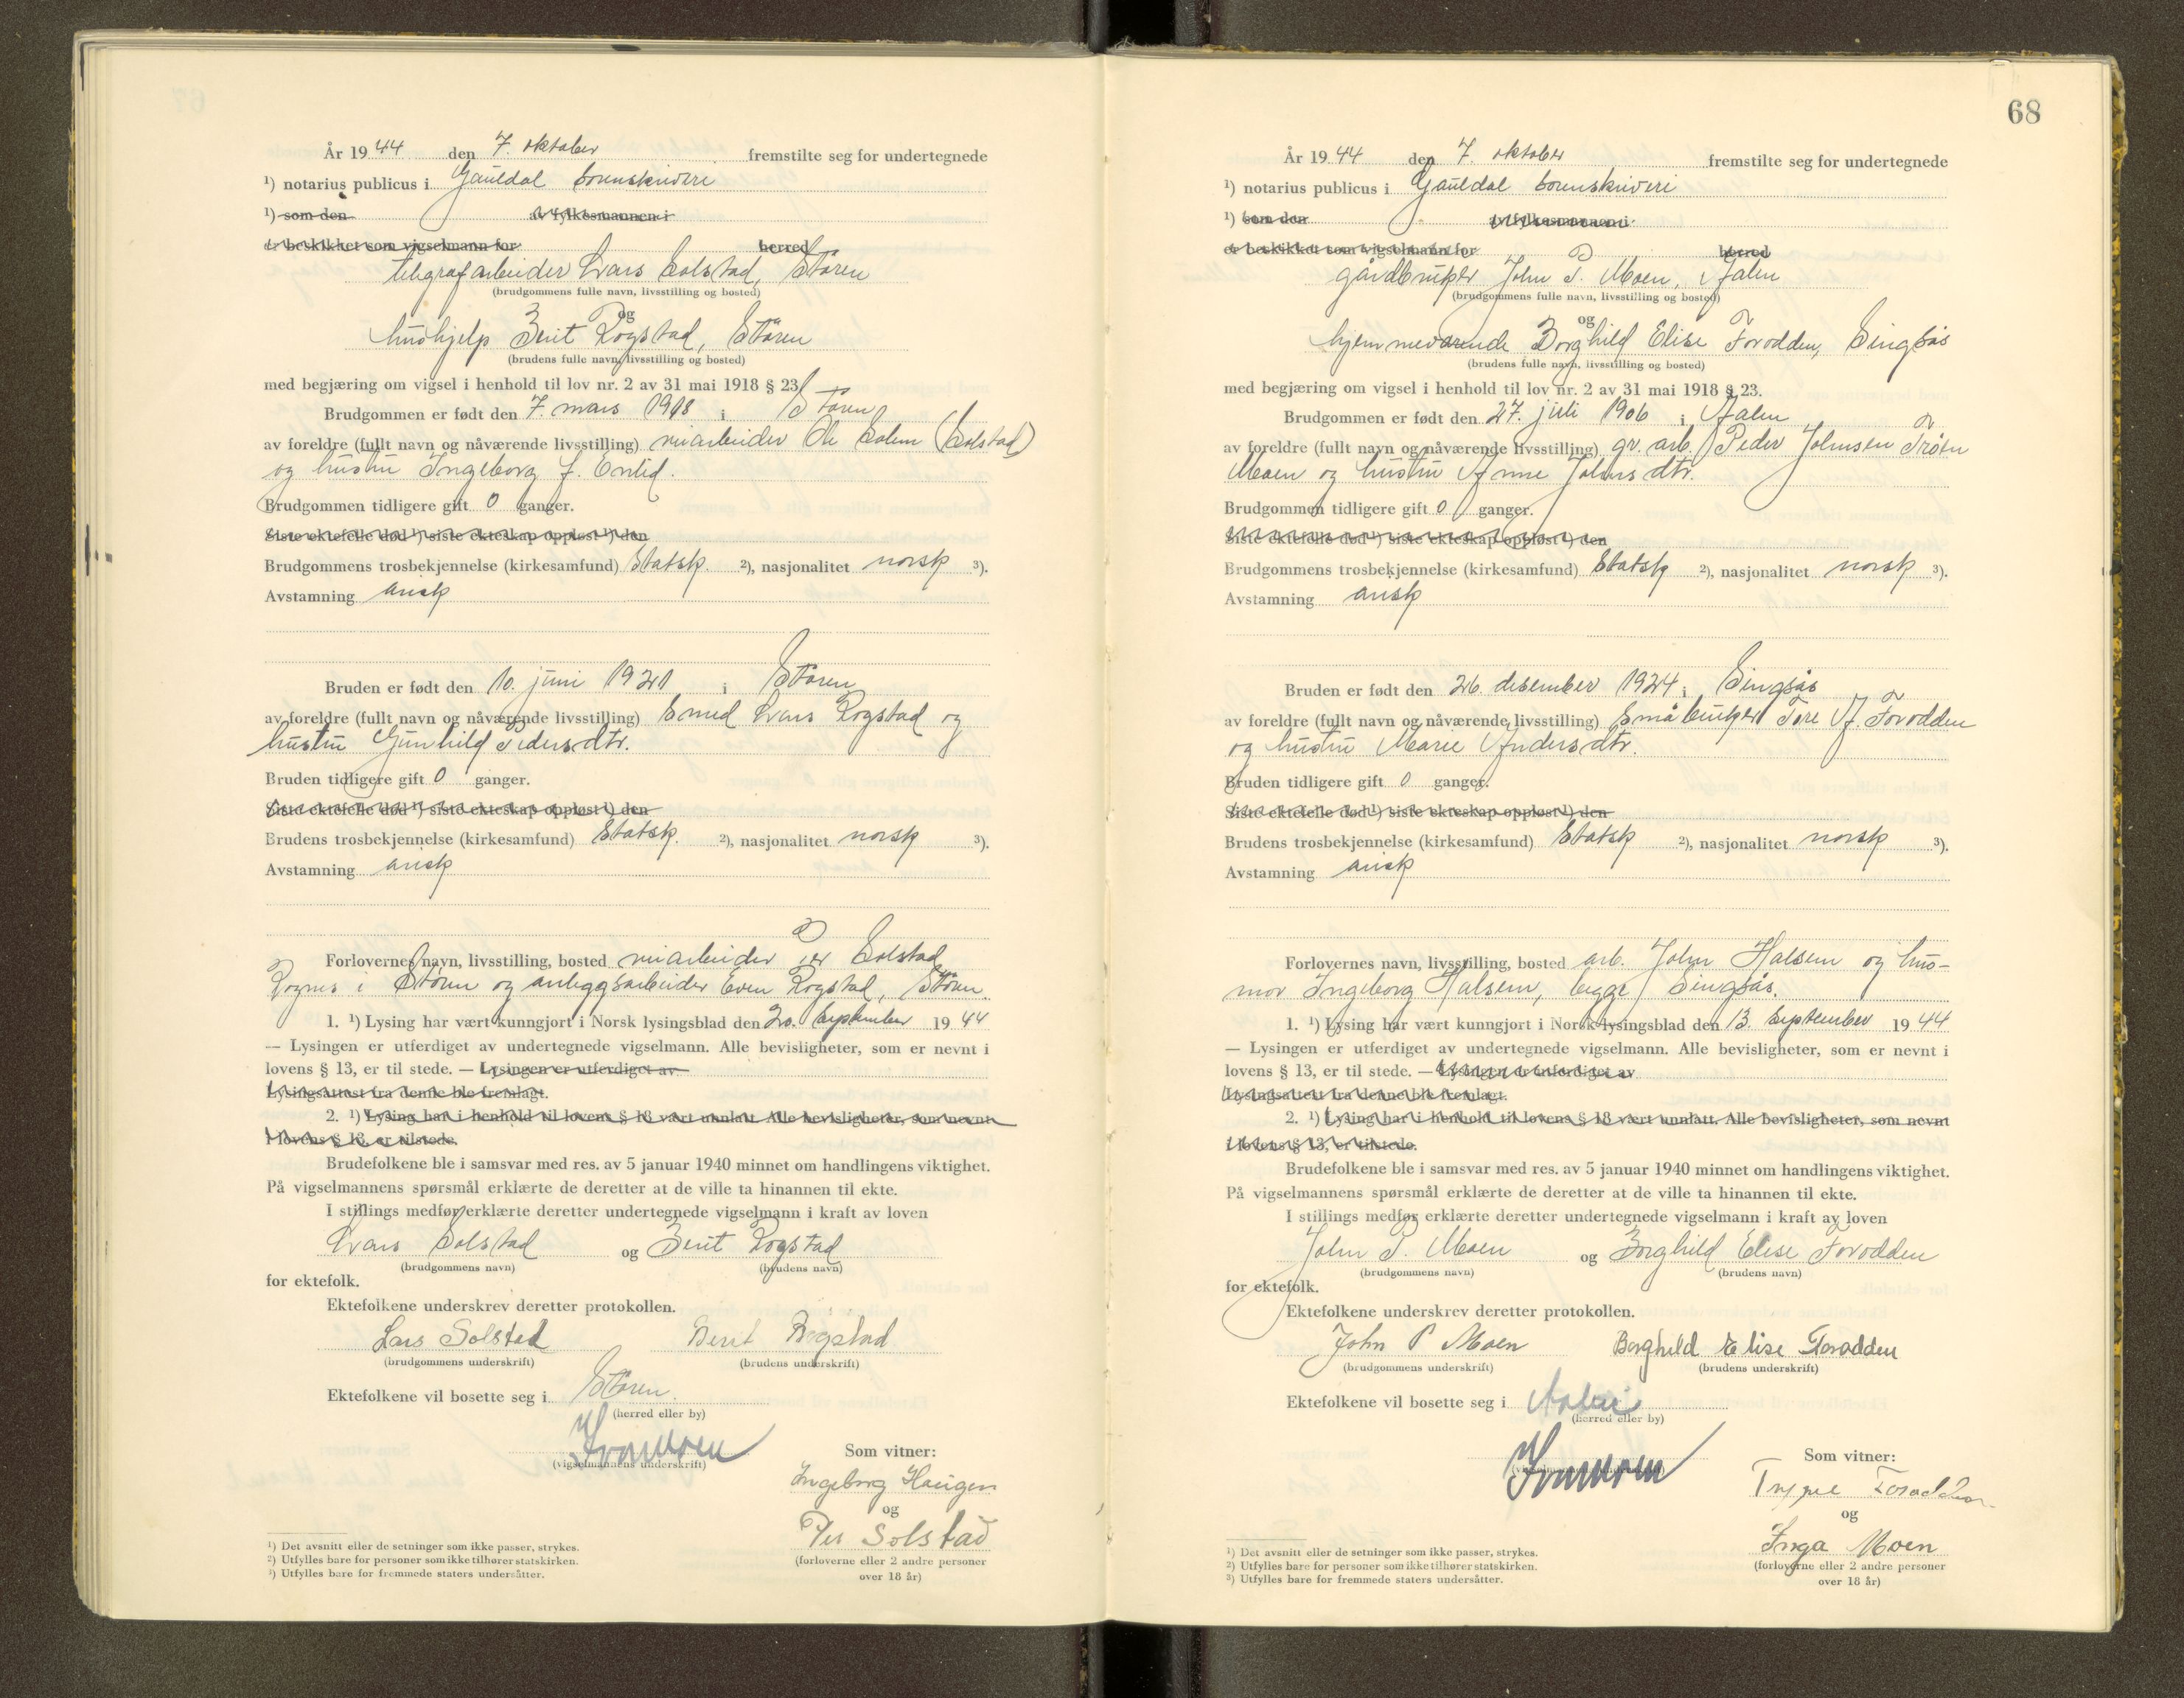 År 19 44 den 7. oktober fremstilte seg for undertegnede
¹) notarius publicus i Gauldal sorenskriveri
¹) som den av fylkesmannen i
er beskikket som vigselmann for herred
telegrafarbeider Lars Solstad, Støren
(brudgommens fulle navn, livsstilling og bosted)
og
hushjelp Berit Rogstad, Støren
(brudens fulle navn, livsstilling og bosted)
med begjæring om vigsel i henhold til lov nr. 2 av 31 mai 1918 § 23.
Brudgommen er født den 7. mars 1918 i Støren
av foreldre (fullt navn og nåværende livsstilling) veiarbeider Ole Solem (Solstad)
og hustru Ingeborg J. Enlid.
Brudgommen tidligere gift 0 ganger.
Siste ektefelle død ¹) siste ekteskap oppløst ¹) den
Brudgommens trosbekjennelse (kirkesamfund) Statsk. ²), nasjonalitet norsk ³).
Avstamning arisk
Bruden er født den 10. juni 1921 i Støren
av foreldre (fullt navn og nåværende livsstilling) smed Lars Rogstad og
hustru Gunhild Pedersdtr.
Bruden tidligere gift 0 ganger.
Siste ektefelle død ¹) siste ekteskap oppløst ¹) den
Brudens trosbekjennelse (kirkesamfund) Statsk. ²), nasjonalitet norsk ³).
Avstamning arisk
Forlovernes navn, livsstilling, bosted veiarbeider Per Solstad
Rognes i Støren og anleggsarbeider Even Rogstad, Støren.
1. ¹) Lysing har vært kunngjort i Norsk lysingsblad den 20. september 19 44
— Lysingen er utferdiget av undertegnede vigselmann. Alle bevisligheter, som er nevnt i
lovens § 13, er til stede. — Lysingen er utferdiget av
Lysingsattest fra denne ble fremlagt.
2. ¹) Lysing har i henhold til lovens § 18 vært unnlatt. Alle bevisligheter, som nevnt
i lovens § 13, er tilstede.
Brudefolkene ble i samsvar med res. av 5 januar 1940 minnet om handlingens viktighet.
På vigselmannens spørsmål erklærte de deretter at de ville ta hinannen til ekte.
I stillings medfør erklærte deretter undertegnede vigselmann i kraft av loven
Lars Solstad og Berit Rogstad
(brudgommens navn) (brudens navn)
for ektefolk.
Ektefolkene underskrev deretter protokollen.
Lars Solstad Berit Rogstad
(brudgommens underskrift) (brudens underskrift)
Ektefolkene vil bosette seg i Støren.
(herred eller by)
(vigselmannens underskrift)
Som vitner:
Ingeborg Haugen
og
Per Solstad
(forloverne eller 2 andre personer
over 18 år)
¹) Det avsnitt eller de setninger som ikke passer, strykes.
²) Utfylles bare for personer som ikke tilhører statskirken.
³) Utfylles bare for fremmede staters undersåtter.
68
År 19 44 den 7. oktober fremstilte seg for undertegnede
¹) notarius publicus i Gauldal sorenskriveri
¹) som den av fylkesmannen i
er beskikket som vigselmann for herred
gårdbruker John P. Moen, Ålen
(brudgommens fulle navn, livsstilling og bosted)
og
hjemmeværende Borghild Elise Forodden, Singsås
(brudens fulle navn, livsstilling og bosted)
med begjæring om vigsel i henhold til lov nr. 2 av 31 mai 1918 § 23.
Brudgommen er født den 27. juli 1906 i Ålen
av foreldre (fullt navn og nåværende livsstilling) gr. arb. Peder Johnsen Trøen
Moen og hustru Anne Johnsdtr.
Brudgommen tidligere gift 0 ganger.
Siste ektefelle død ¹) siste ekteskap oppløst ¹) den
Brudgommens trosbekjennelse (kirkesamfund) Statsk ²), nasjonalitet norsk ³).
Avstamning arisk
Bruden er født den 26. desember 1924 i Singsås
av foreldre (fullt navn og nåværende livsstilling) småbruker Tore A. Forodden
og hustru Marie Andersdtr.
Bruden tidligere gift 0 ganger.
Siste ektefelle død ¹) siste ekteskap oppløst ¹) den
Brudens trosbekjennelse (kirkesamfund) Statsk ²), nasjonalitet norsk ³).
Avstamning arisk
Forlovernes navn, livsstilling, bosted arb. John Halsem og hus-
mor Ingeborg Halsem, begge Singsås.
1. ¹) Lysing har vært kunngjort i Norsk lysingsblad den 13. september 19 44
— Lysingen er utferdiget av undertegnede vigselmann. Alle bevisligheter, som er nevnt i
lovens § 13, er til stede. — Lysingen er utferdiget av
Lysingsattest fra denne ble fremlagt.
2. ¹) Lysing har i henhold til lovens § 18 vært unnlatt. Alle bevisligheter, som nevnt
i lovens § 13, er tilstede.
Brudefolkene ble i samsvar med res. av 5 januar 1940 minnet om handlingens viktighet.
På vigselmannens spørsmål erklærte de deretter at de ville ta hinannen til ekte.
I stillings medfør erklærte deretter undertegnede vigselmann i kraft av loven
John P. Moen og Borghild Elise Forodden
(brudgommens navn) (brudens navn)
for ektefolk.
Ektefolkene underskrev deretter protokollen.
John P Moen Borghild Elise Forodden
(brudgommens underskrift) (brudens underskrift)
Ektefolkene vil bosette seg i Aalen
(herred eller by)
(vigselmannens underskrift)
Som vitner:
Forodden
og
Inga Moen
(forloverne eller 2 andre personer
over 18 år)
¹) Det avsnitt eller de setninger som ikke passer, strykes.
²) Utfylles bare for personer som ikke tilhører statskirken.
³) Utfylles bare for fremmede staters undersåtter.